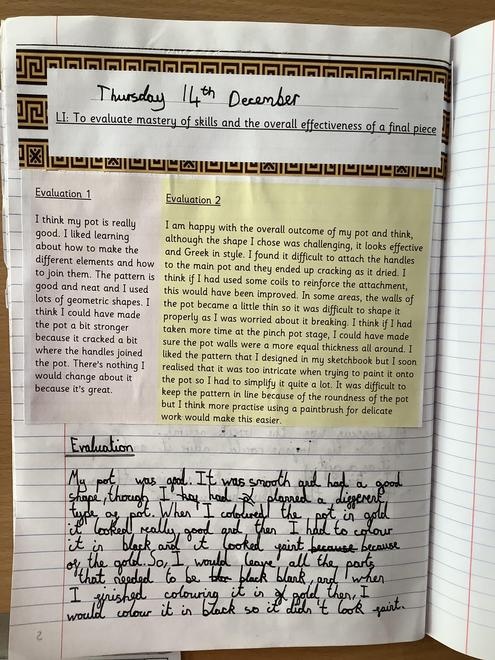 Thursday 14th December
LI: To evaluate mastery of skills and the overall effectiveness of a final piece
Evaluation 1
I think my pot is really
good. I liked learning
about how to make the
different elements and how
to join them. The pattern is
good and neat and I used
lots of geometric shapes. I
think I could have made
the pot a bit stronger
because it cracked a bit
where the handles joined
the pot. There's nothing I
would change about it
because it's great.
Evaluation 2
I am happy with the overall outcome of my pot and think,
although the shape I chose was challenging, it looks effective
and Greek in style. I found it difficult to attach the handles
to the main pot and they ended up cracking as it dried. I
think if I had used some coils to reinforce the attachment,
this would have been improved. In some areas, the walls of
the pot became a little thin so it was difficult to shape it
properly as I was worried about it breaking. I think if I had
taken more time at the pinch pot stage, I could have made
sure the pot walls were a more equal thickness all around. I
liked the pattern that I designed in my sketchbook but I soon
realised that it was too intricate when trying to paint it onto
the pot so I had to simplify it quite a lot. It was difficult to
keep the pattern in line because of the roundness of the pot
but I think more practise using a paintbrush for delicate
work would make this easier.
Evaluation
My pot was good. It was smooth and had a good
shape, though I had planned a different
type of pot. When I coloured the pot in gold
it looked really good and then I had to colour
it in black and it looked faint because because
of the gold. So, I would leave all the parts
that needed to be black blank, and when
I finished colouring it in gold then, I
would colour it in black so it didn't look faint.